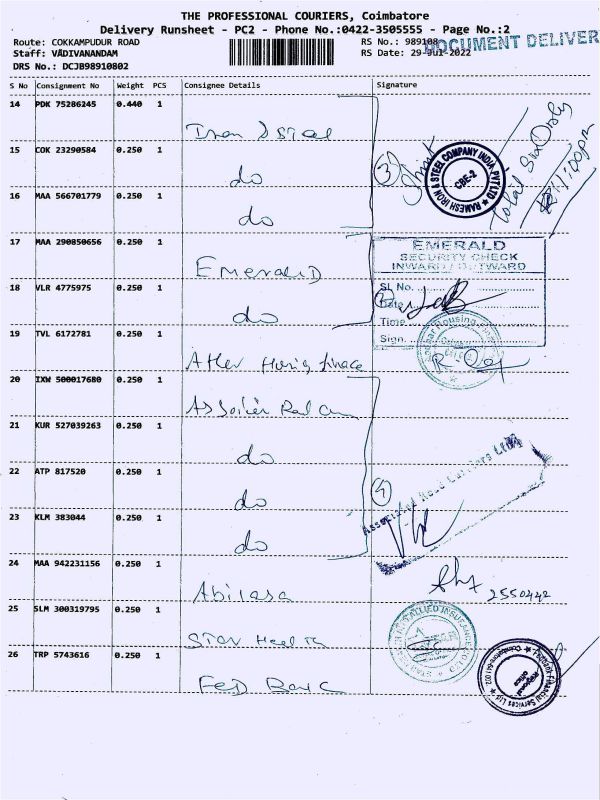 THE PROFESSIONAL COURIERS, Coimbatore
Delivery Runsheet - PC2 - Phone No.:0422-3505555 - Page No.:2
Route: COKKAMPUDUR ROAD
RS No.: 989108
DOCUMENT DELIVER
Staff: VADIVANANDAM
RS Date: 29-Jul-2022
DRS No.: DCJB98910802
S No Consignment No Weight PCS Consignee Details Signature
14 PDK 75286245 0.440 1
15 COK 23290584 0.250 1 do
16 MAA 566701779 0.250 1 do
17 MAA 290850656 0.250 1 Emerald
18 VLR 4775975 0.250 1 do
19 TVL 6172781 0.250 1
20 IXW 500017680 0.250 1
21 KUR 527039263 0.250 1 do
22 ATP 817520 0.250 1 do
23 KLM 383044 0.250 1 do
24 MAA 942231156 0.250 1 Abilasa
25 SLM 300319795 0.250 1 Star Health
26 TRP 5743616 0.250 1 Fed Bank
3
RAMESH IRON & STEEL COMPANY INDIA PVT LTD
CBE-2
Total Six Only
EMERALD
SECURITY CHECK
INWARD / OUTWARD
Sl No.
Date
Time
Sign.
4
Associated Road Carriers Ltd
2550442
Regional Office